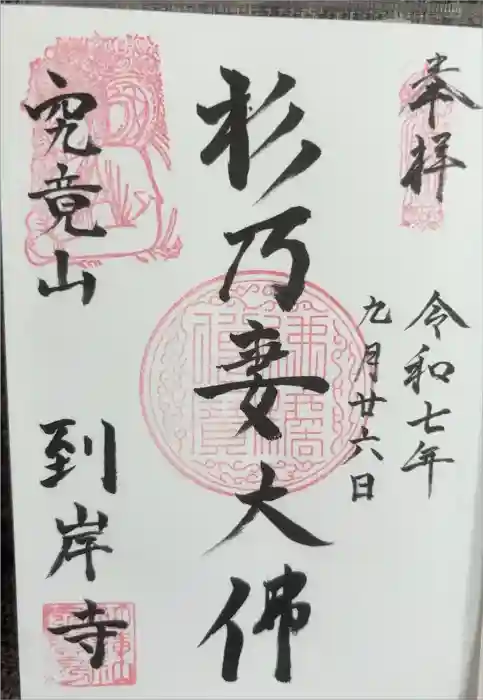 奉拝
令和七年
九月廿六日
杉乃妻大佛
究竟山
到岸寺